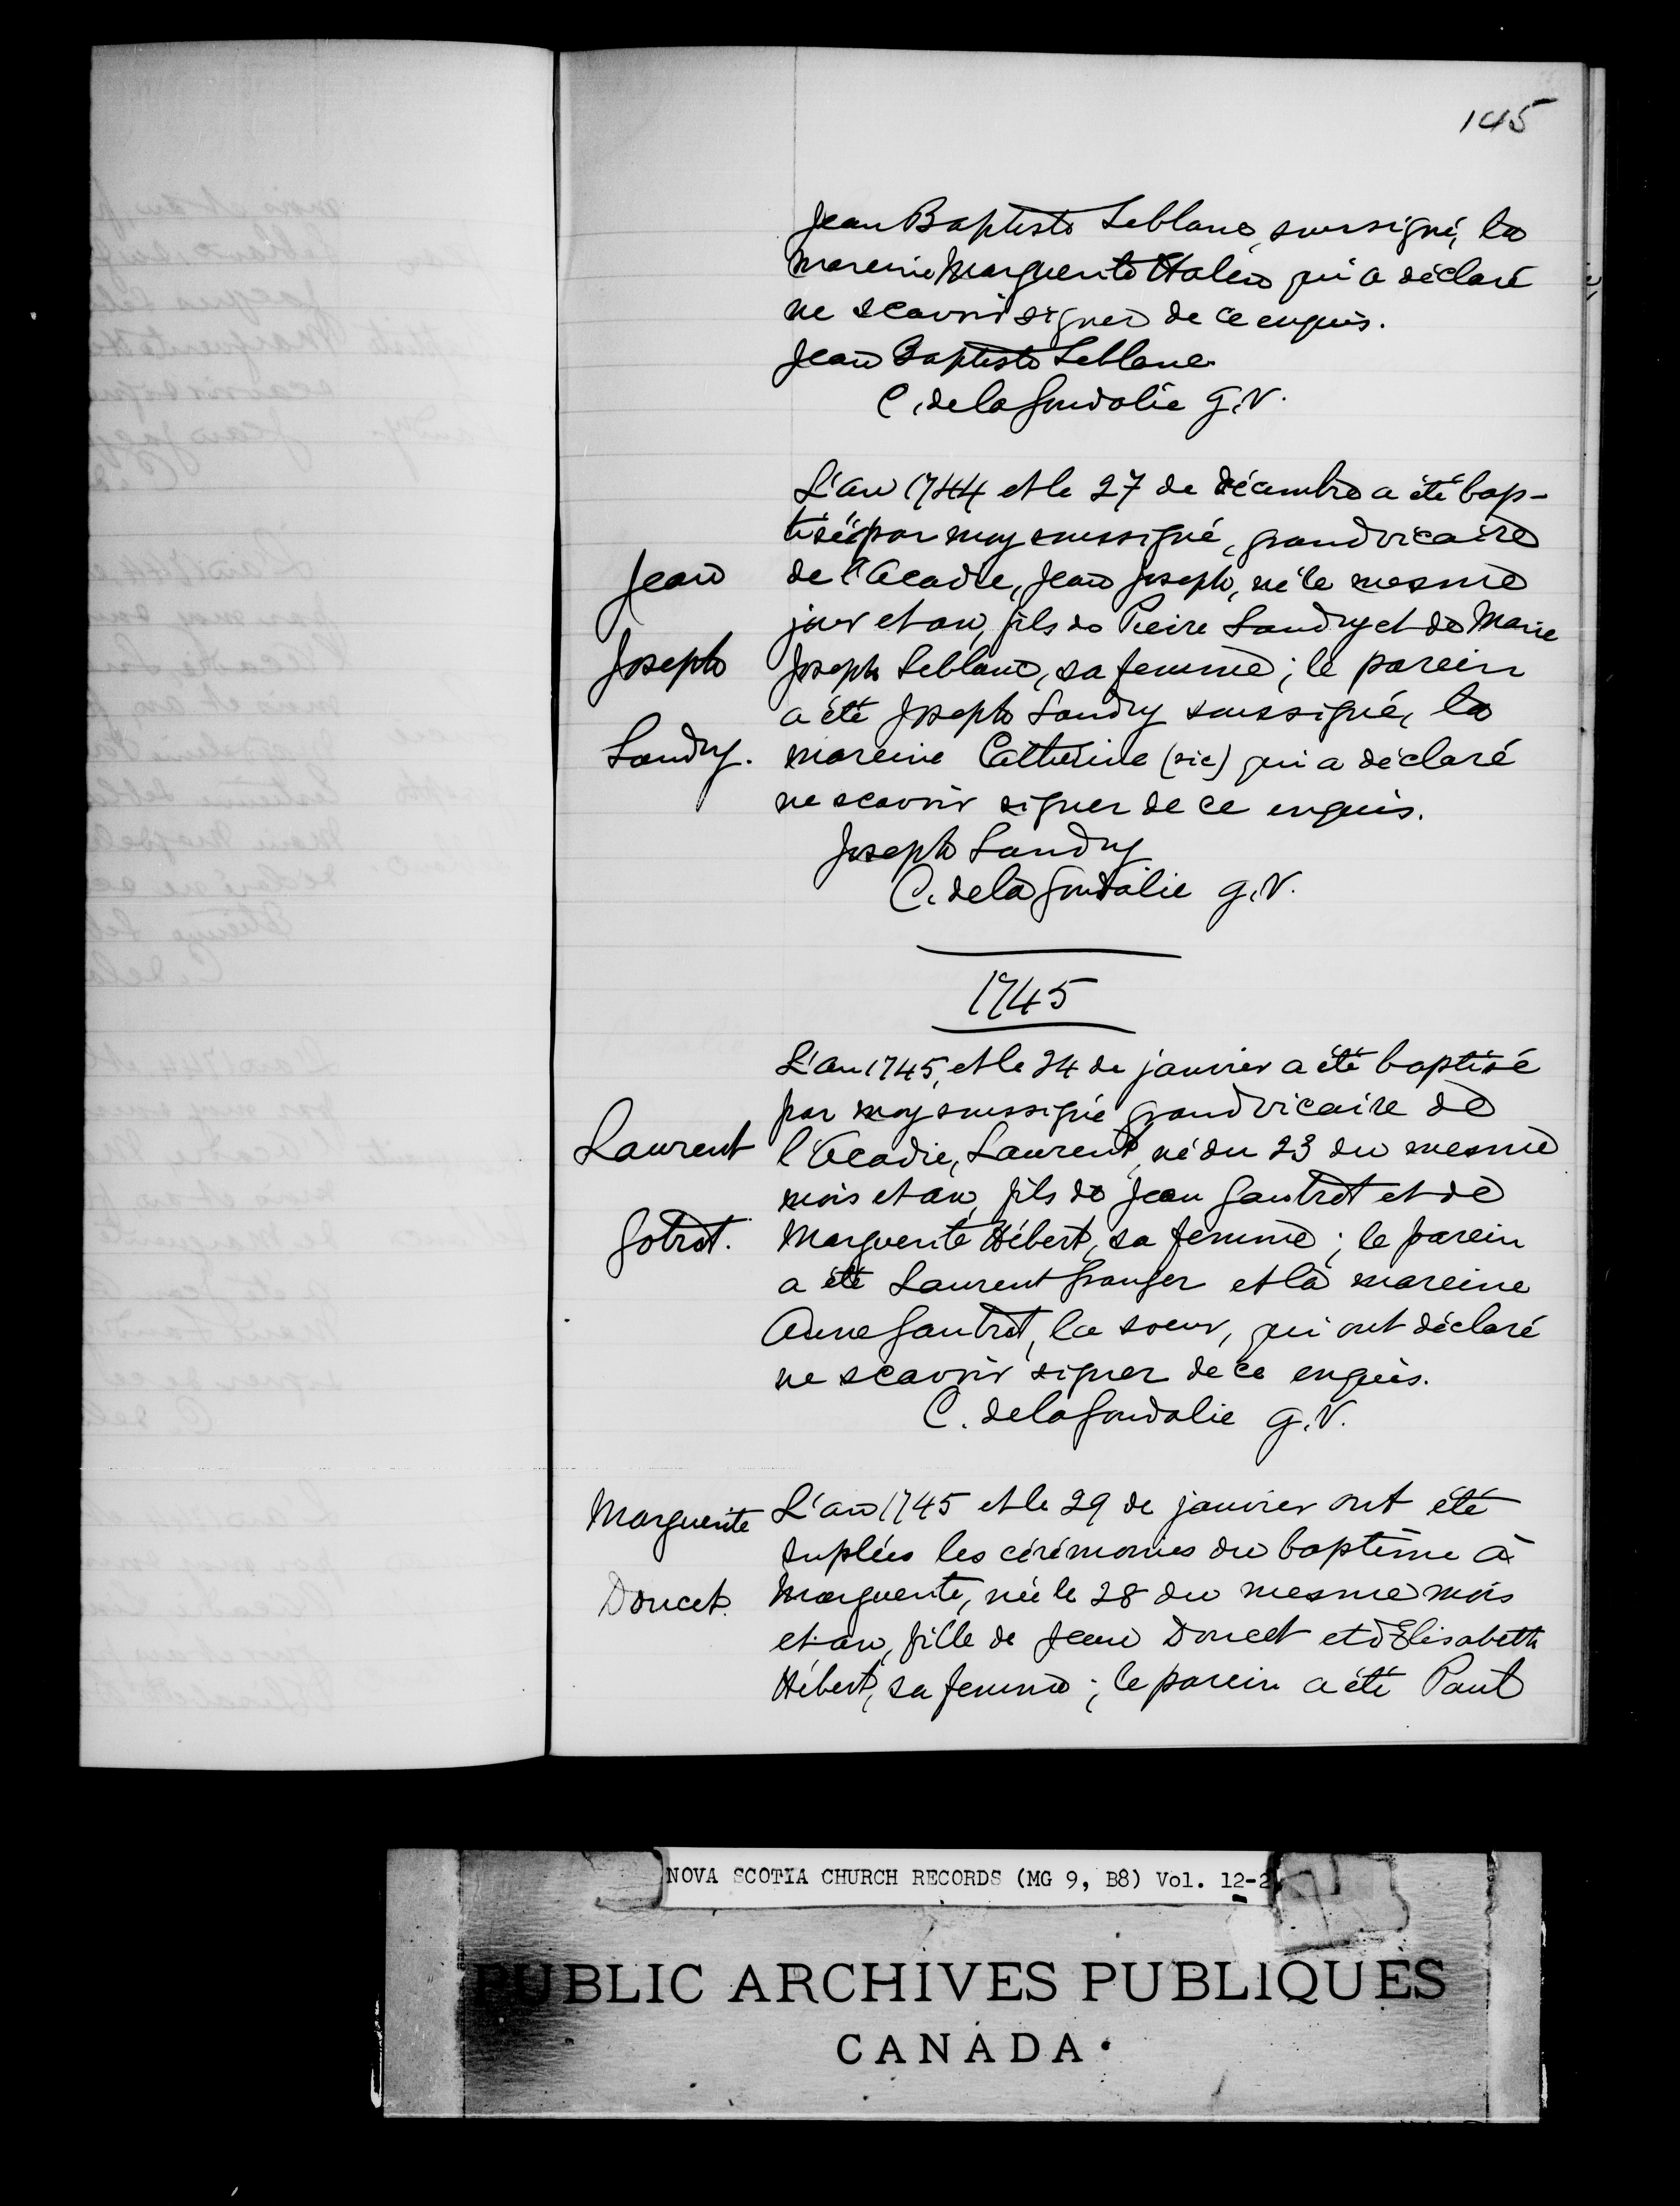 145
Jean Baptiste Leblanc, soussigné, la
mareine Marguerite Halein qui a déclaré
ne scavoir signer de ce enquis.
Jean Baptiste Leblanc
C. de la Goudalie G.V.
L'an 1744 et le 27 de décembre a été bap-
tisé par moy soussigné, grand vicaire
Jean
de l'Acadie, Jean Joseph, né le mesme
jour et an, fils de Pieire Landry et de Marie
Joseph
Joseph Leblanc, sa femme; le parein
a été Joseph Landry soussigné, la
Landry.
mareine Catherine (sic) qui a déclaré
ne scavoir signer de ce enquis.
Joseph Landry
C. de la Goudalie g.V.
1745
L'an 1745, et le 24 de janvier a été baptisé
par moy soussigné grand vicaire de
Laurent
l'Acadie, Laurent, né du 23 du mesme
mois et an, fils de Jean Gautrot et de
Gotrot.
Marguerite Hébert, sa femme; le parein
a été Laurent Granger et la mareine
Anne Gautrot, la soeur, qui ont déclaré
ne scavoir signer de ce enquis.
C. de la Goudalie g.V.
Marguerite
L'an 1745 et le 29 de janvier ont été
suplées les cérémonies du baptême à
Doucet.
Marguerite, née le 28 du mesme mois
et an, fille de Jean Doucet et d'Elisabeth
Hébert, sa femme; le parein a été Paul
NOVA SCOTIA CHURCH RECORDS (MG 9, B8) Vol. 12-2
PUBLIC ARCHIVES PUBLIQUES
CANADA